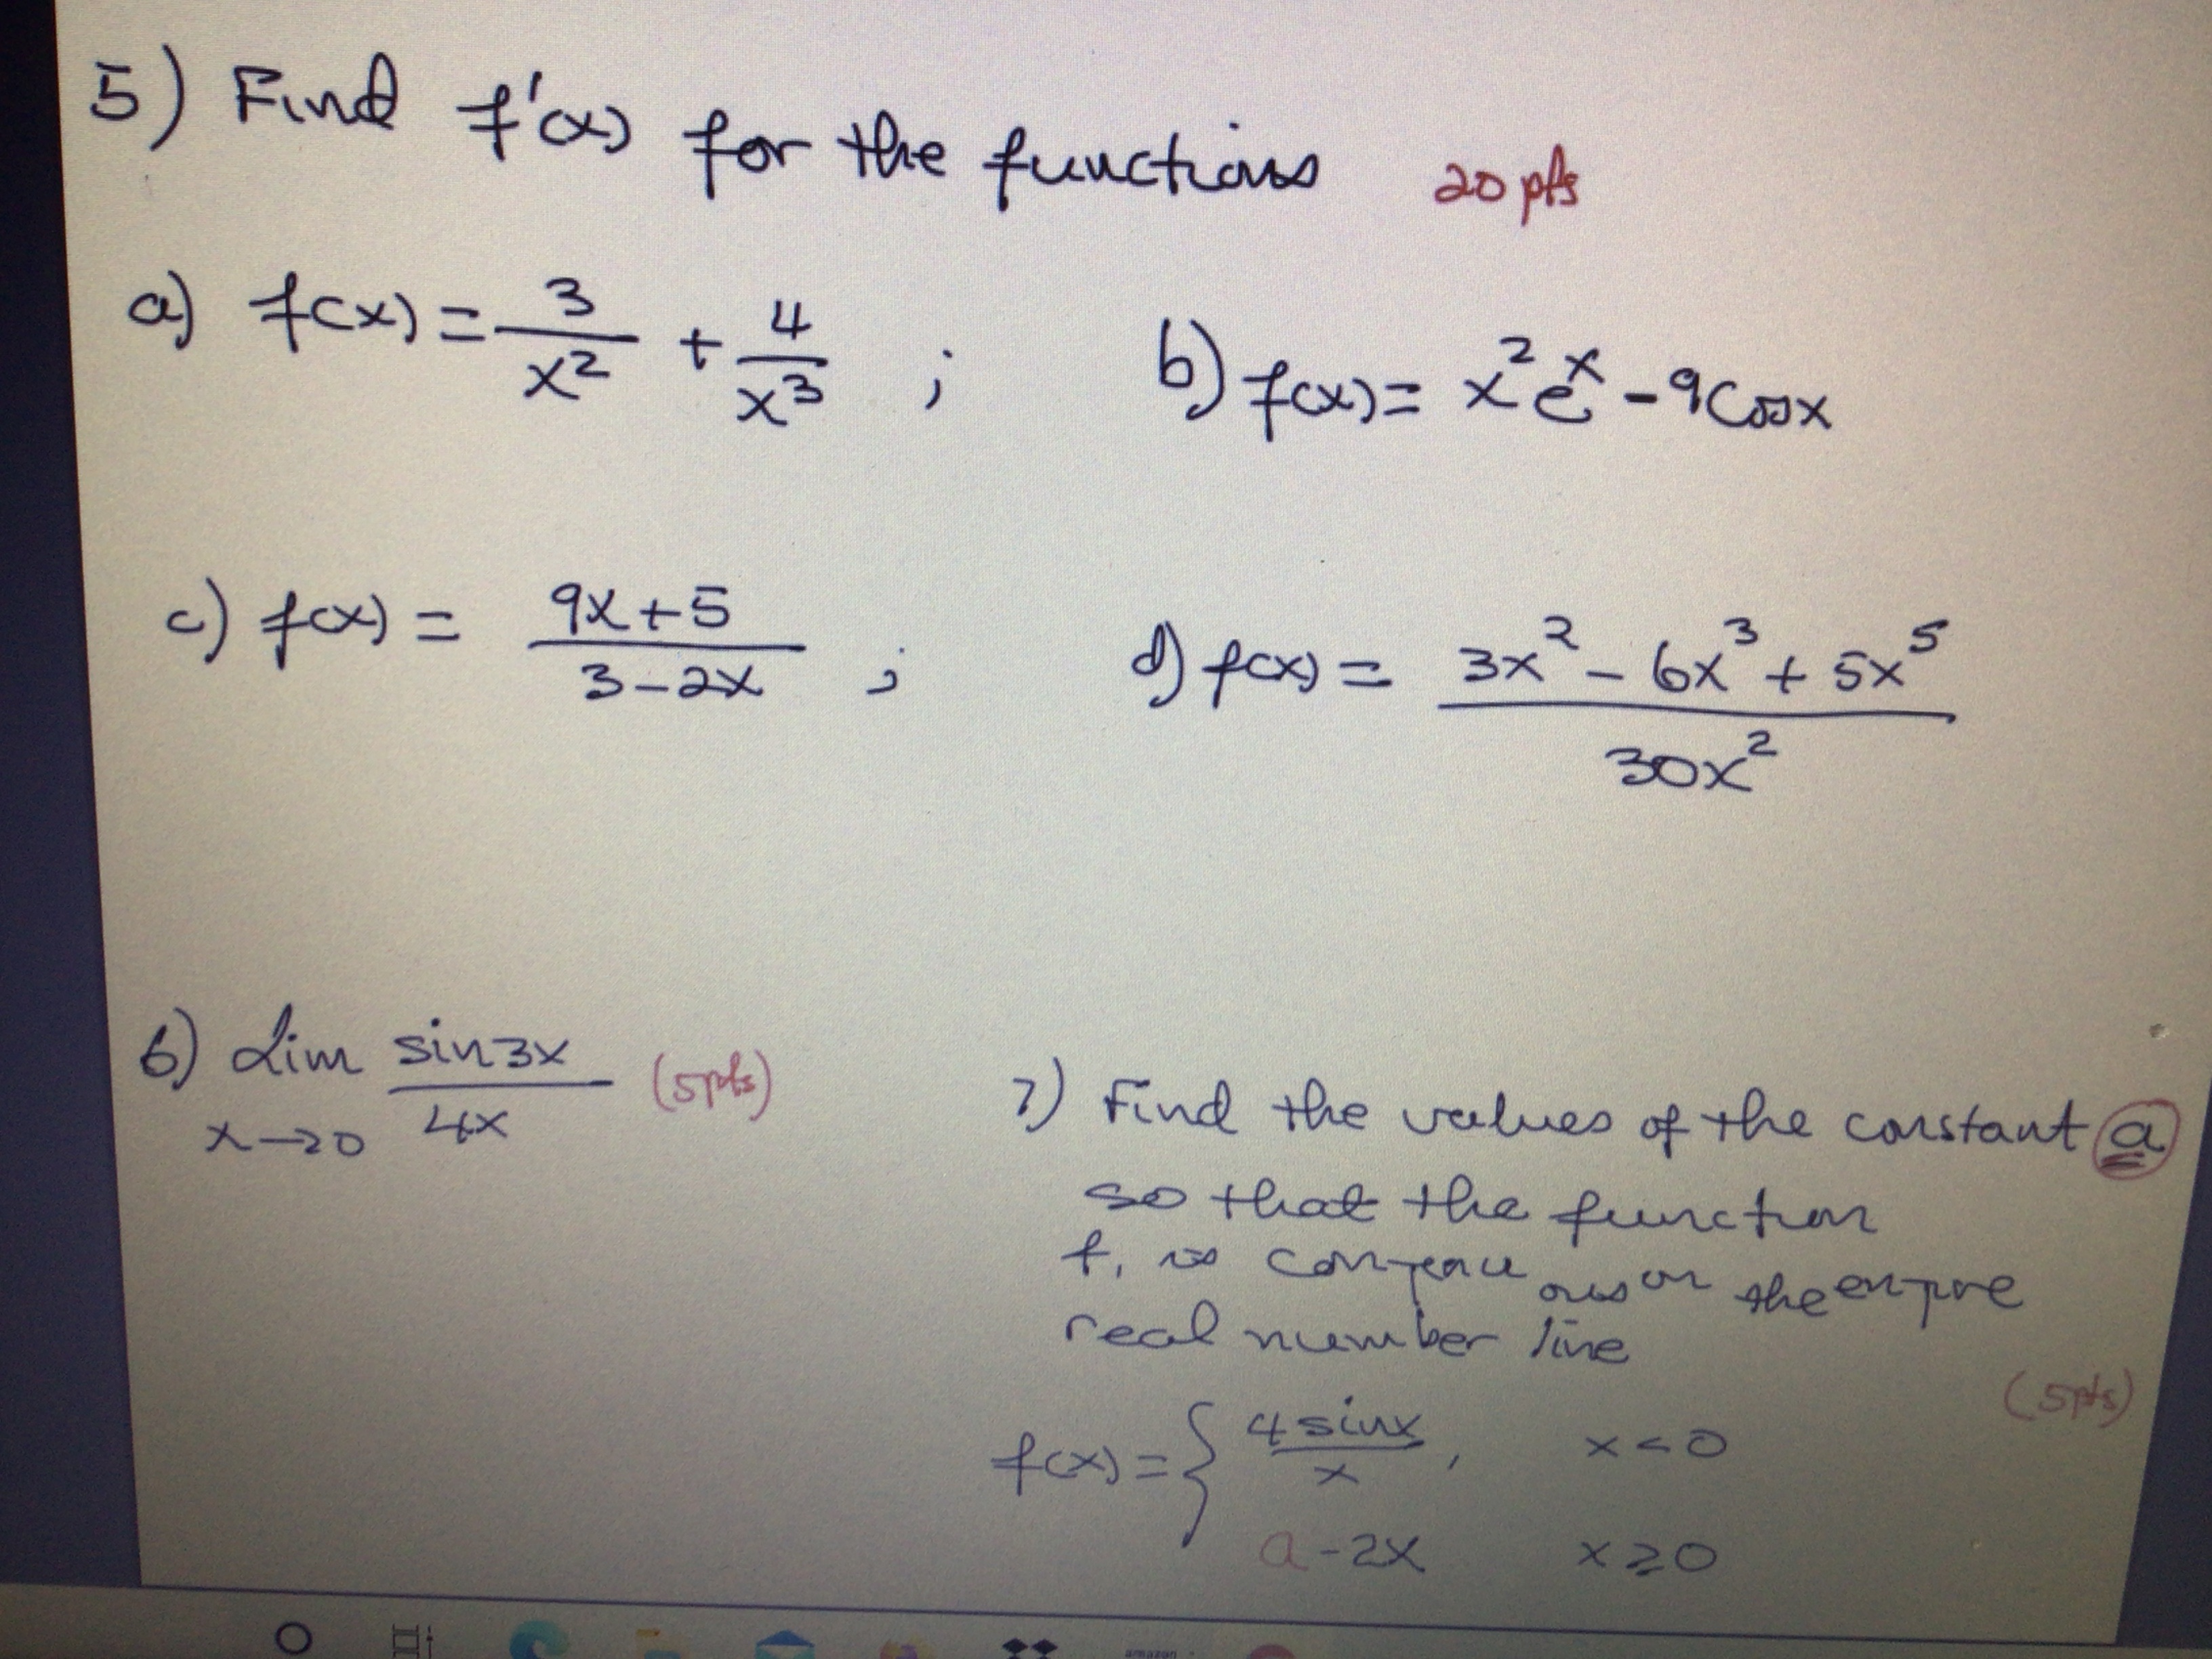 5) Find f'(x) for the functions 20 pts
a) f(x) = 3/x² + 4/x³ ; b) f(x) = x²eˣ - 9cosx
c) f(x) = (9x+5)/(3-2x) ; d) f(x) = (3x² - 6x³ + 5x⁵)/(30x²)
6) Lim x→0 sin3x/4x (5pts)
7) Find the values of the constant a
so that the function
f, is continuous on the entire
real number line
(5pts)
f(x) = { 4sinx/x, x<0
a-2x x≥0